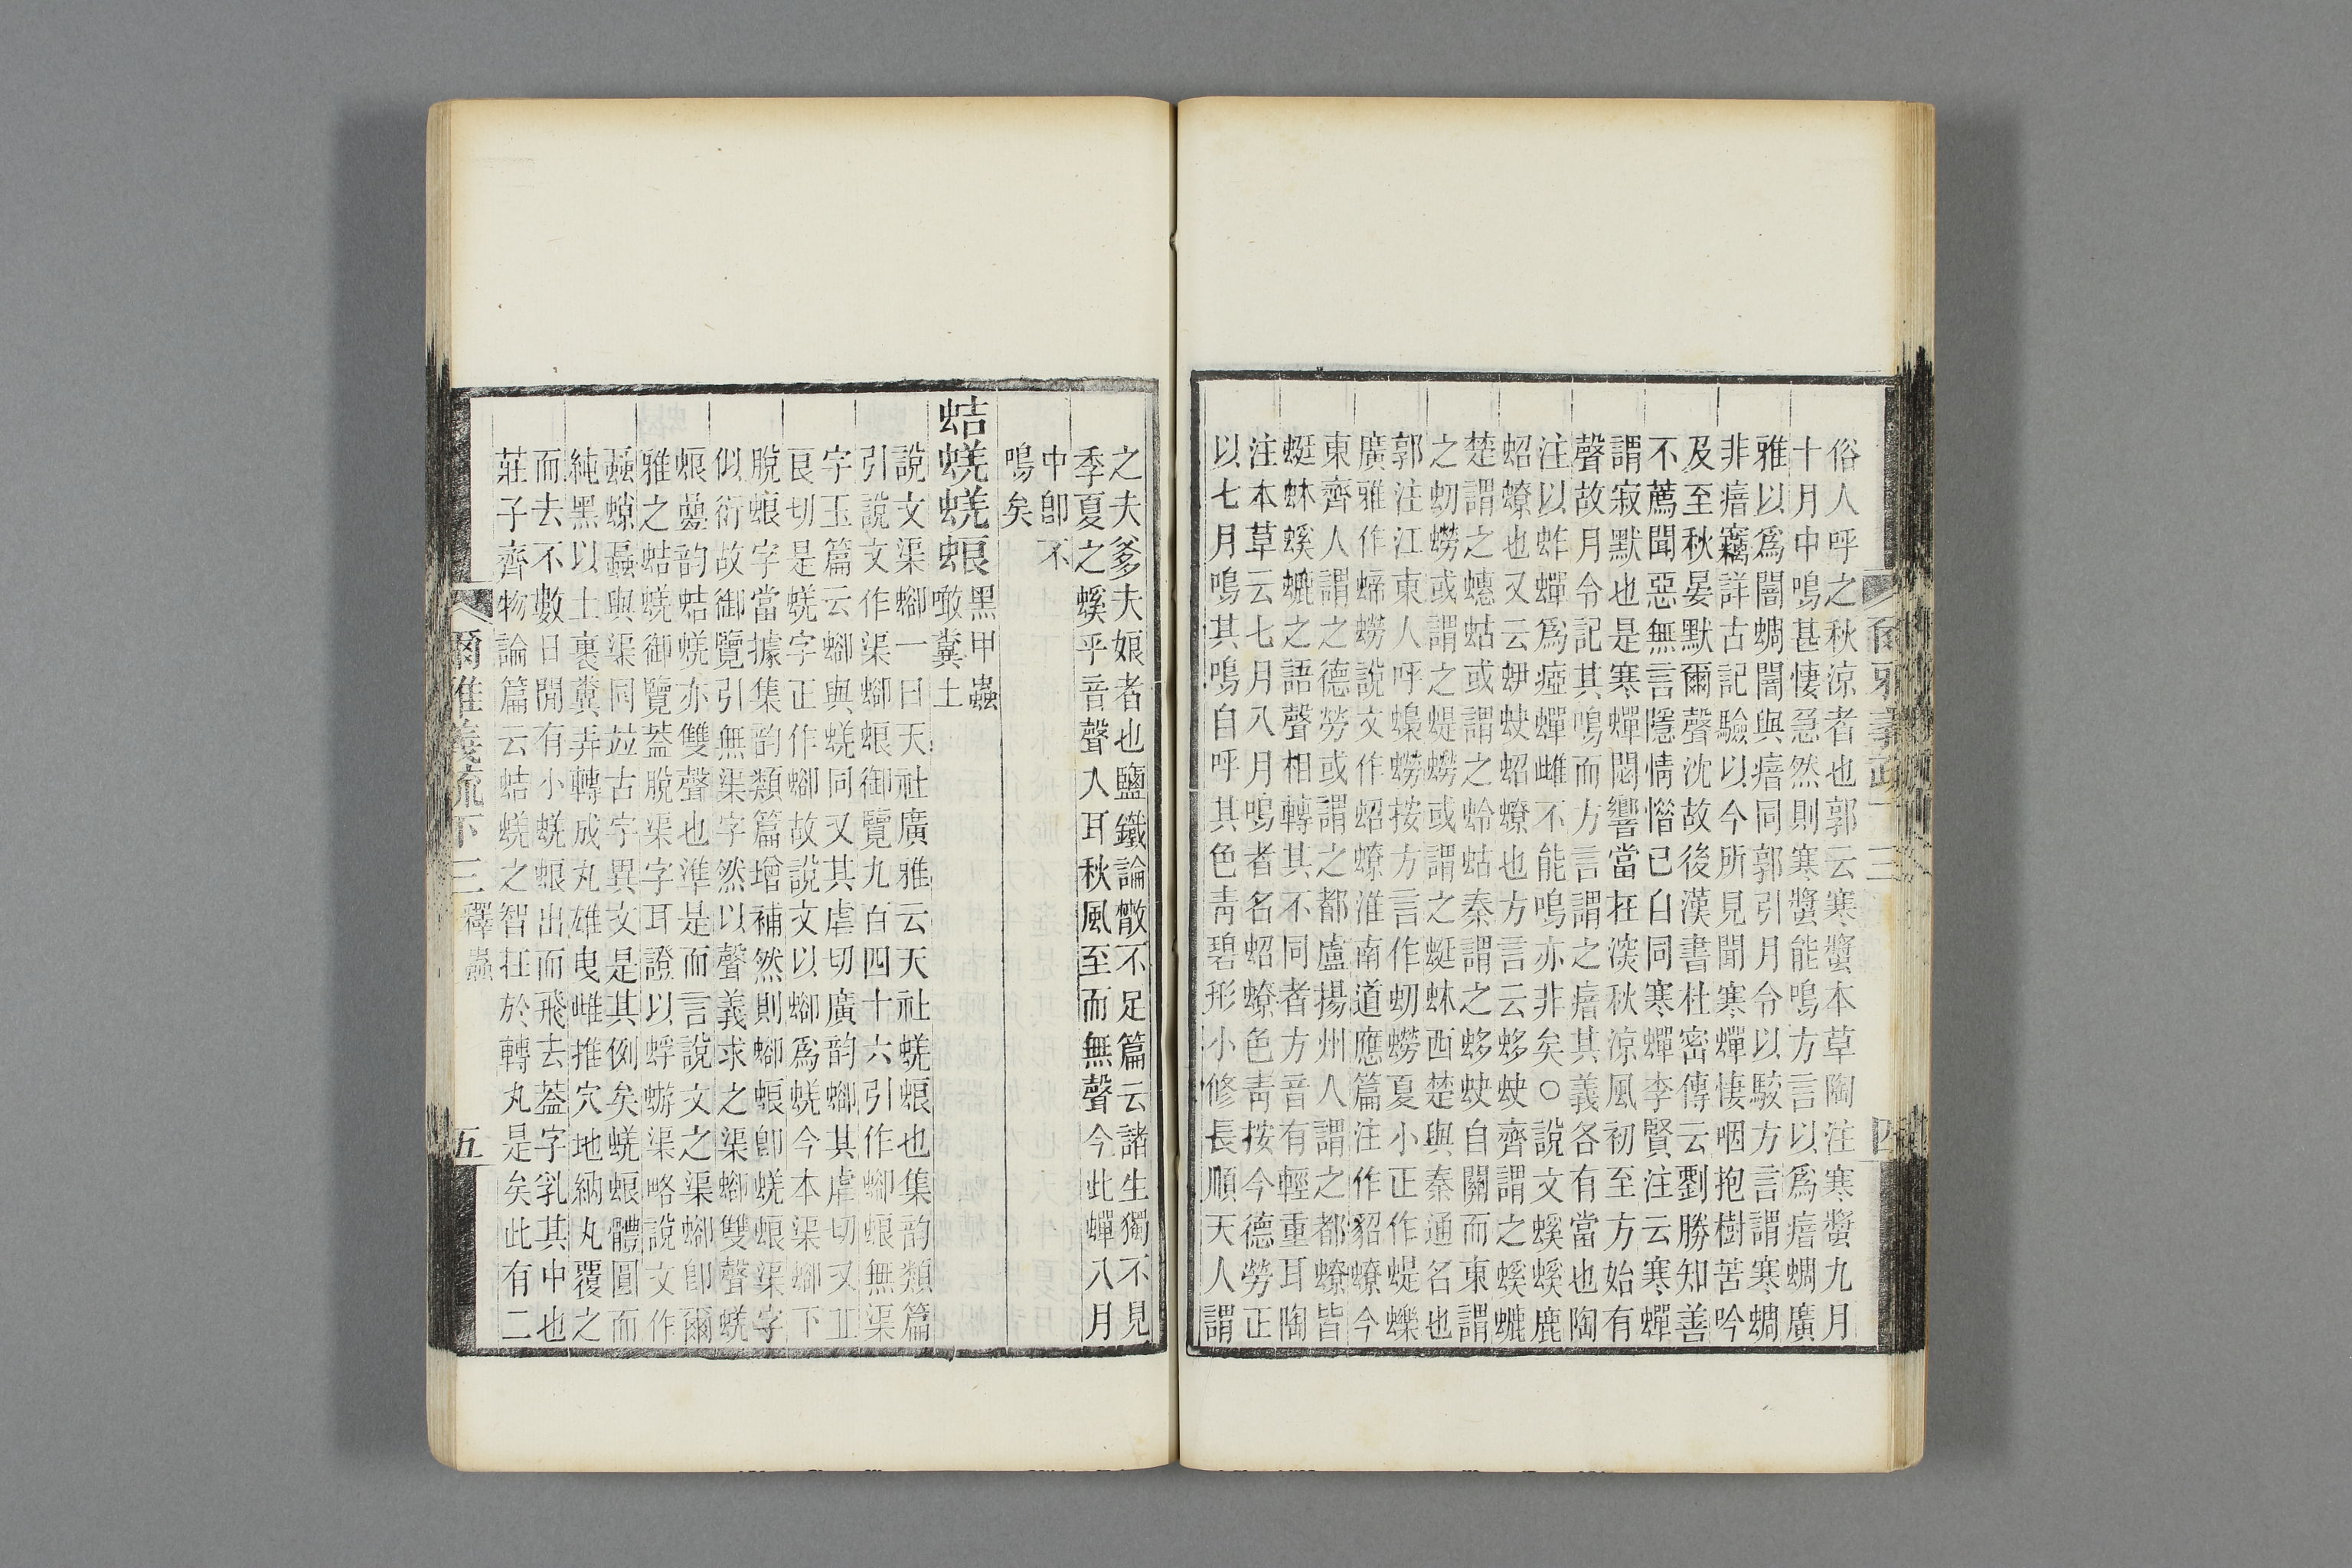 俗人呼之秋涼者也郭云寒螿本草陶注寒螿九月
十月中鳴甚悽急然則寒螿能鳴方言以爲瘖蜩廣
雅以爲闇蜩闇與瘖同郭引月令以駮方言謂寒蜩
非瘖竊詳古記驗以今所見聞寒蟬悽咽抱樹苦吟
及至秋晏默爾聲沈故後漢書杜密傳云劉勝知善
不薦聞惡無言隱情惜己自同寒蟬李賢注云寒蟬
謂寂默也是寒蟬悶響當在湥秋涼風初至方始有
聲故月令記其鳴而方言謂之瘖其義各有當也陶
注以蚱蟬爲瘂蟬雌不能鳴亦非矣○說文蟪螇鹿
蛁蟟也又云蚈蚗蛁蟟也方言云蛥蚗齊謂之螇螰
楚謂之蟪蛄或謂之蛉蛄秦謂之蛥蚗自關而東謂
之虭蟧或謂之蝭蟧或謂之蜓蚞西楚與秦通名也
郭注江東人呼蟂蟧按方言作虭蟧夏小正作蝭蠑
廣雅作蝭蟧說文作蛁蟟淮南道應篇注作貂蟟今
東齊人謂之德勞或謂之都盧揚州人謂之都蟟皆
蜓蚞螇螰之語聲相轉其不同者方音有輕重耳陶
注本草云七月八月鳴者名蛁蟟色青按今德勞正
以七月鳴其鳴自呼其色青碧形小修長順天人謂
爾雅義疏下三
四
之夫爹夫娘者也鹽鐵論散不足篇云諸生獨不見
季夏之螇乎音聲入耳秋風至而無聲今此蟬八月
中卽不
鳴矣
蛣蜣蜣蜋黑甲蟲
噉糞土
說文渠蝍一曰天社廣雅云天社蜣蜋也集韵類篇
引說文作渠蝍蜋御覽九百四十六引作蝍蜋無渠
字玉篇云蝍與蜣同又其虐切廣韵蝍其虐切又丘
良切是蜣字正作蝍故說文以蝍爲蜣今本渠蝍下
脫蜋字當據集韵類篇增補然則蝍蜋卽蜣蜋渠字
似衍故御覽引無渠字然以聲義求之渠蝍雙聲蜣
蜋曡韵蛣蜣亦雙聲也準是而言說文之渠蝍卽爾
雅之蛣蜣御覽葢脫渠字耳證以蜉蝣渠略說文作
蟲螑蟲與渠同竝古字異文是其例矣蜣蜋體圓而
純黑以土裹糞弄轉成丸雄曳雌推穴地納丸覆之
而去不數日閒有小蜣蜋出而飛去葢字乳其中也
莊子齊物論篇云蛣蜣之智在於轉丸是矣此有二
爾雅義疏下三 釋蟲
五